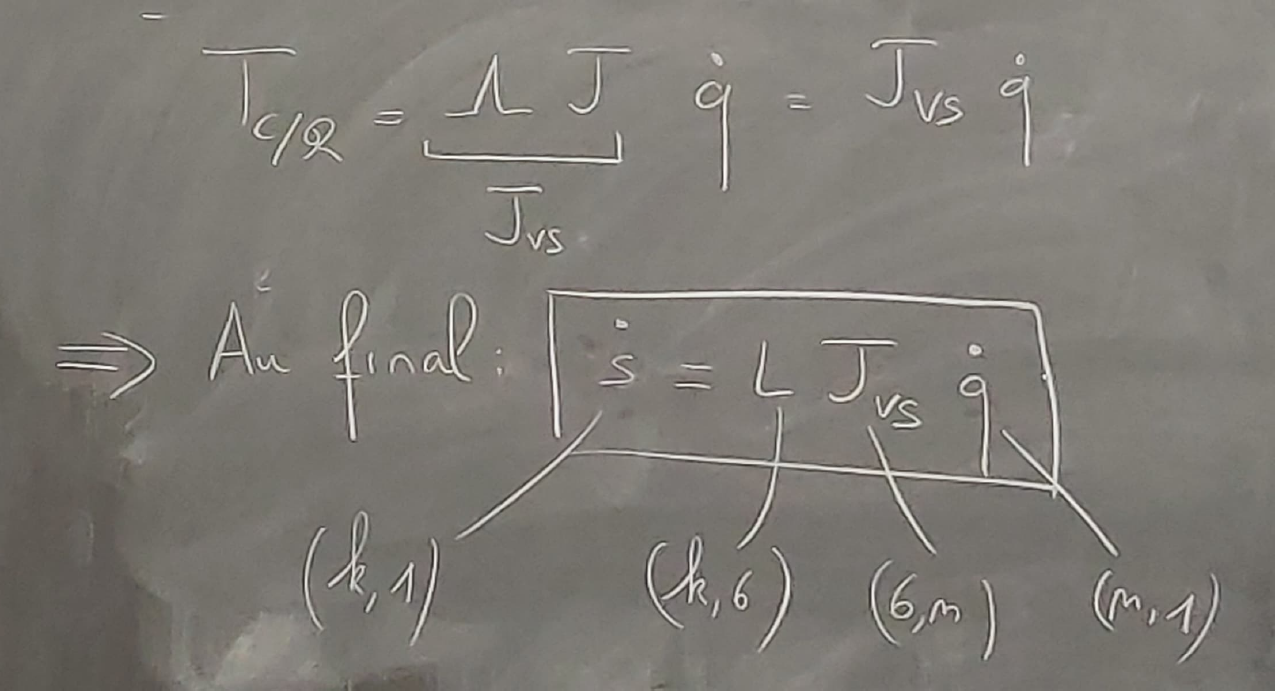 T_{C/R} = Λ J q̇ = J_{VS} q̇
J_{VS}
⇒ Au final : ṡ = L J_{VS} q̇
(k,1) (k,6) (6,n) (n,1)